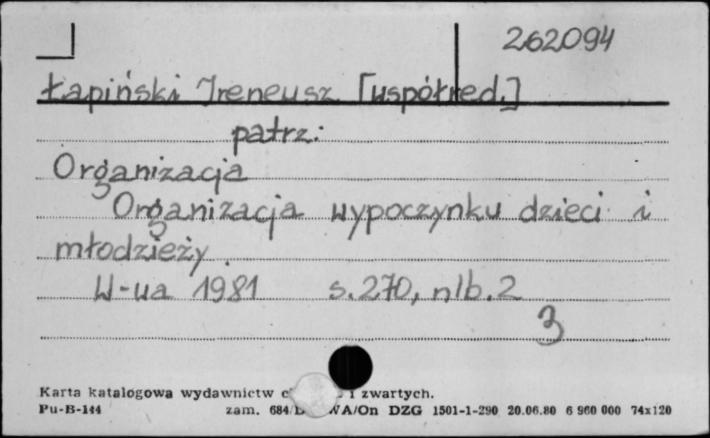 262094
Łapiński Ireneusz [współred.]
patrz:
Organizacja
Organizacja wypoczynku dzieci i
młodzieży.
W-wa 1981 s. 270, nlb. 2
3
Karta katalogowa wydawnictw i zwartych.
Pu-B-144 zam. 684/ WA/On DZG 1501-1-290 20.06.80 6 960 000 74x120